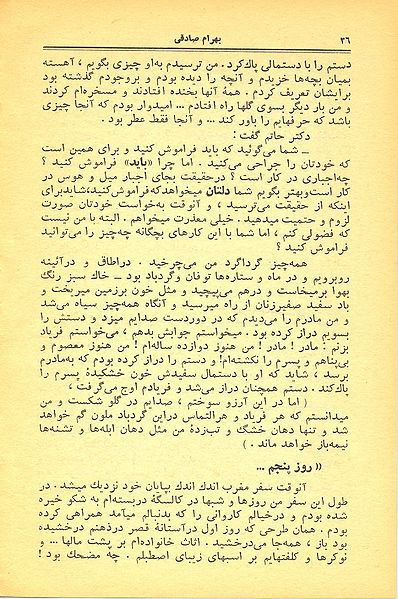 ۳۶
بهرام صادقی
دستم را با دستمالی پاک‌کرد. من ترسیدم به‌او چیزی بگویم ، آهسته
بمیان بچه‌ها خزیدم و آنچه را دیده بودم و بروجودم گذشته بود
برایشان تعریف کردم . همهٔ آنها بخنده افتادند و مسخره‌ام کردند
و من بار دیگر بسوی گلها راه افتادم ... امیدوار بودم که آنجا چیزی
باشد که حرفهایم را باور کند ... و آنجا فقط عطر بود .
دکتر حاتم گفت :
ــ شما می‌گوئید که باید فراموش کنید و برای همین است
که خودتان را جراحی می‌کنید . اما چرا «باید» فراموش کنید ؟
چه‌اجباری در کار است ؟ درحقیقت بجای اجبار میل و هوس در
کار است‌وبهتر بگویم شما دلتان میخواهدکه‌فراموش‌کنید،شایدبرای
اینکه از حقیقت می‌ترسید ، و آنوقت به‌خواست خودتان صورت
لزوم و حتمیت میدهید . خیلی معذرت میخواهم . البته با من نیست
که فضولی کنم ، اما شما با این کارهای بچگانه چه‌چیز را می‌توانید
فراموش کنید ؟
همه‌چیز گرداگرد من می‌چرخید . دراطاق و درآئینه
روبرویم و در ماه و ستاره‌ها توفان وگردباد بود ــ خاک سبز رنگ
بهوا برمیخاست و درهم می‌پیچید و مثل خون برزمین میریخت و
باد سفید صفیرزنان از راه میرسید و آنگاه همه‌چیز سیاه می‌شد
و من مادرم را می‌دیدم که در دوردست صدایم میزد و دستش را
بسویم دراز کرده بود . میخواستم جوابش بدهم ، می‌خواستم فریاد
بزنم : مادر ! مادر ! من هنوز دوازده ساله‌ام ! من هنوز معصوم و
بی‌گناهم و پسرم را نکشته‌ام! و دستم را دراز کرده بودم که به‌مادرم
برسد ، شاید که او با دستمال سفیدش خون خشکیدهٔ پسرم را
پاک‌کند . دستم همچنان دراز می‌شد و فریادم اوج می‌گرفت ،
( اما در این آرزو سوختم ، صدایم در گلو شکست و من
میدانستم که هر فریاد و هرالتماس دراین گردباد ملون گم خواهد
شد و تنها دهان خشک و تب‌زدهٔ من مثل دهان ابله‌ها و تشنه‌ها
نیمه‌باز خواهد ماند . )
« روز پنجم ...
آنوقت سفر مقرب اندک اندک بپایان خود نزدیک میشد . در
طول این سفر من روزها و شبها در کالسکهٔ دربسته‌ام به شکو خیره
شده بودم و درخیالم کاروانی را که بدنبالم میآمد همراهی کرده
بودم . همان طرحی که روز اول درآستانهٔ قصر درذهنم درخشیده
بود باز ، همه‌جا می‌درخشید . اثاث خانواده‌ام بر پشت مالها ... و
نوکرها و کلفتهایم بر اسبهای زیبای اصطبلم . چه مضحک بود !